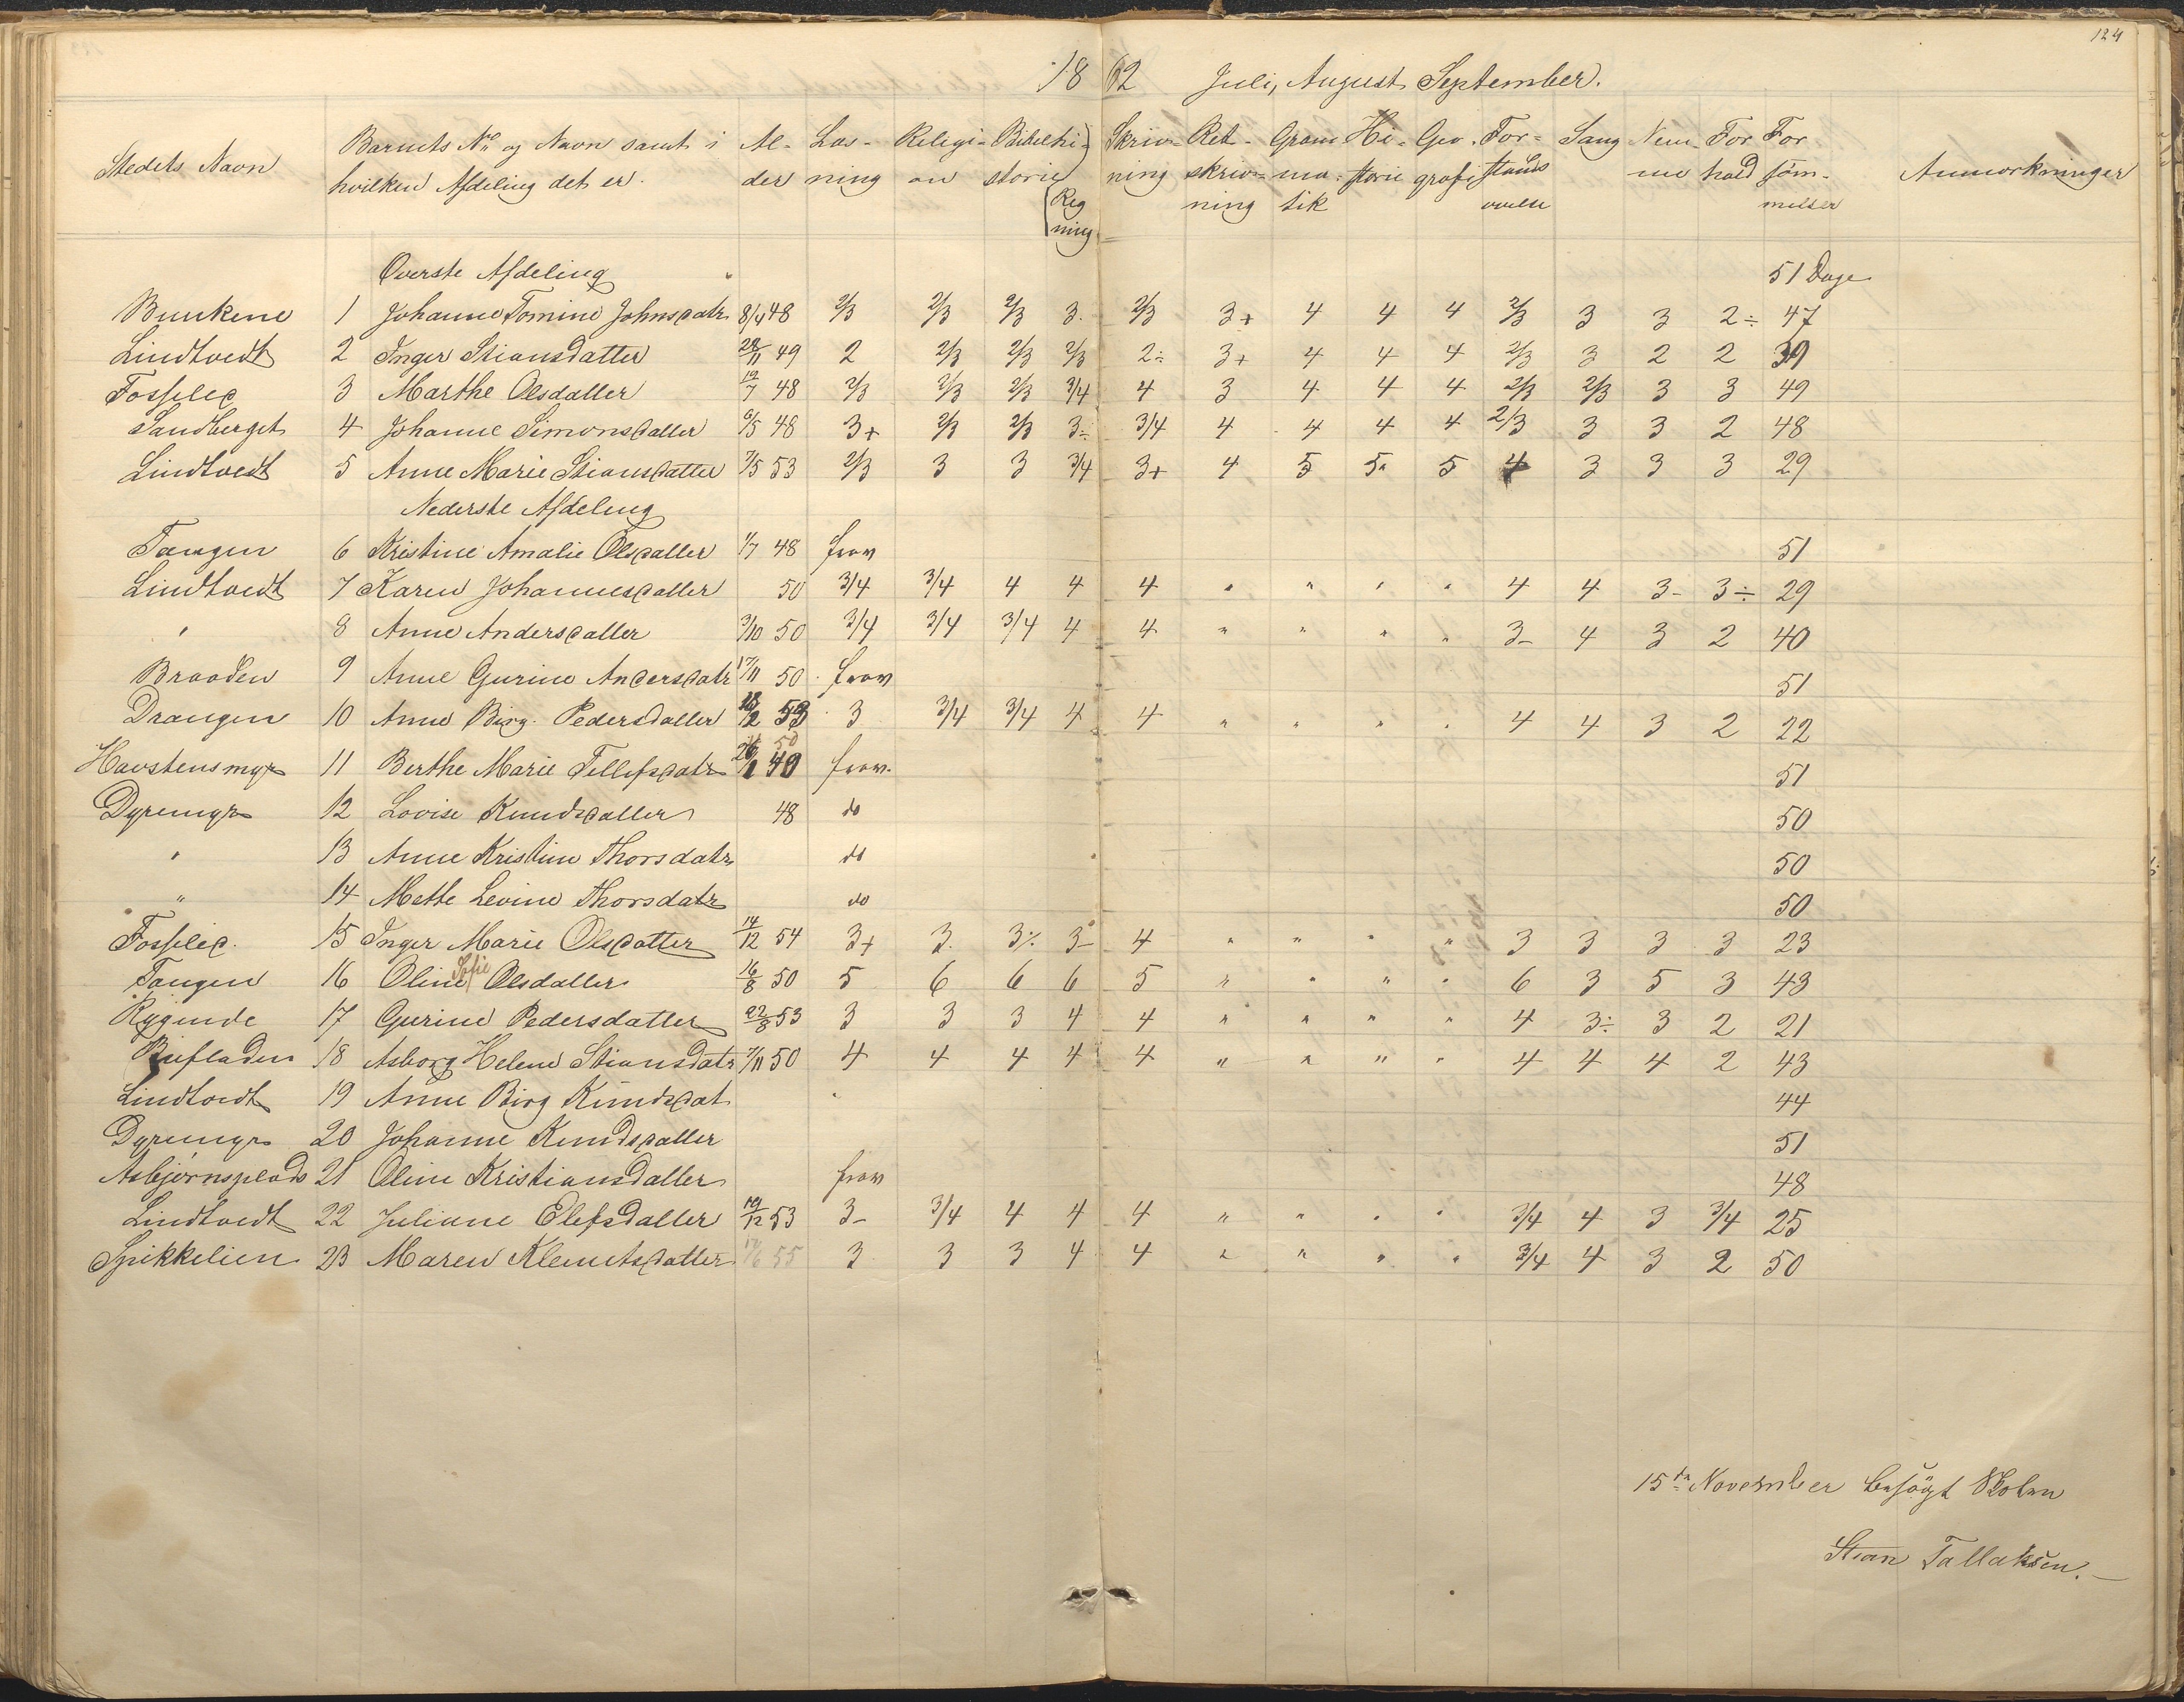 124
1862 Juli, August September.
Stedets Navn Barnets No og Navn samt i hvilken Afdeling det er. Al-der Læs-ning Religi-on Bibelhi-storie Reg ning Skriv-ning Ret-skriv-ning Gram-ma-tik Hi-storie Geo-grafi For-stands øvelse Sang Nem-me For hold For söm-melser Anmærkninger
Øverste Afdeling 51 Dage
1 Johanne Tomine Johnsdatr 8/4 48 2/3 2/3 2/3 3 2/3 3+ 4 4 4 2/3 3 3 2÷ 47
Lindtvedt 2 Inger Stiansdatter 28/11 49 2 2/3 2/3 2/3 2÷ 3+ 4 4 4 2/3 3 2 2 39
Fosselie 3 Marthe Olsdatter 12/7 48 2/3 2/3 2/3 3/4 4 3 4 4 4 2/3 2/3 3 3 49
Sandberget 4 Johanne Simonsdatter 6/5 48 3+ 2/3 2/3 3÷ 3/4 4 4 4 4 2/3 3 3 2 48
Lindtvedt 5 Anne Marie Stiansdatter 7/5 53 2/3 3 3 3/4 3+ 4 5 5 5 4 3 3 3 29
Nederste Afdeling
Tangen 6 Kristine Amalie Olsdatter 1/7 48 frav 51
Lindtvedt 7 Karen Johannesdatter 50 3/4 3/4 4 4 4 " " " " 4 4 3- 3÷ 29
" 8 Anne Andersdatter 3/10 50 3/4 3/4 3/4 4 4 " " " " 3- 4 3 2 40
Braaden 9 Anne Gurine Andersdatr 17/11 50 frav 51
Drangen 10 Anne Birg. Pedersdatter 53 3 3/4 3/4 4 4 " " " " 4 4 3 2 22
Havstensmyr 11 Berthe Marie Tellefsdatr 50 frav. 51
Dyremyr 12 Lovise Knudsdatter 48 do 50
" 13 Anne Kristine Thorsdatr do 50
" 14 Mette Levine Thorsdatr do 50
Fosselie 15 Inger Marie Olsdatter 14/12 54 3+ 3 3÷ 3- 4 " " " " 3 3 3 3 23
Tangen 16 Oline Sofie Olsdatter 16/8 50 5 6 6 6 5 " " " " 6 3 5 3 43
Rygende 17 Gurine Pedersdatter 22/8 53 3 3 3 4 4 " " " " 4 3÷ 3 2 21
18 Asborg Helene Stiansdatr 7/11 50 4 4 4 4 4 " " " " 4 4 4 2 43
Lindtvedt 19 Anne Birg Knudsdat 44
Dyremyr 20 Johanne Knudsdatter 51
Asbjørnsplads 21 Oline Kristiansdatter frav 48
Lindtvedt 22 Juliane Elefsdatter 19/12 53 3- 3/4 4 4 4 " " " " 3/4 4 3 3/4 25
Spikkelien 23 Maren Klemetsdatter 17/6 55 3 3 3 4 4 " " " " 3/4 4 3 2 50
15de November besögt Skolen
Stian Tallaksen.